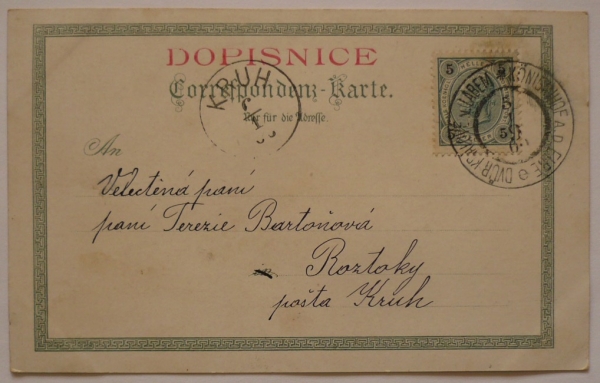 DOPISNICE
Correspondenz-Karte.
Nur für die Adresse.
KRUH
5 HELLER 5
KÖNIGINHOF A. D. ELBE
DVŮR KRÁLOVÉ N. LABEM
An
Velectěná paní
paní Terezie Bartoňová
Roztoky
pošta Kruh